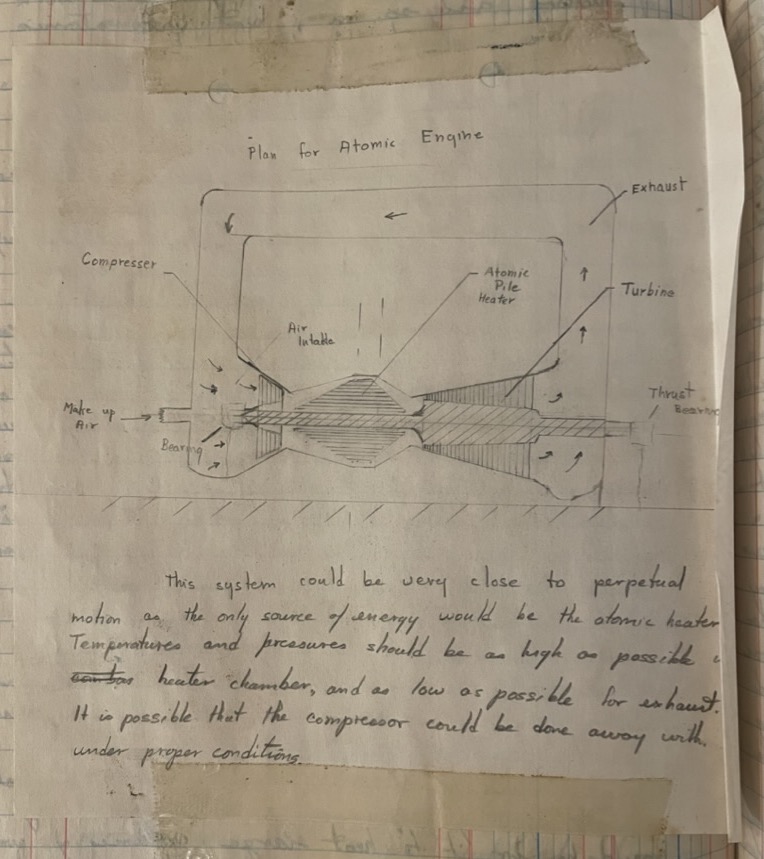 Plan for Atomic Engine
Exhaust
Compresser
Atomic
Pile
Heater
Turbine
Air
Intake
Make up
Air
Thrust
Bearing
Bearing
This system could be very close to perpetual
motion as the only source of energy would be the atomic heater
Temperatures and pressures should be as high as possible
heater chamber, and as low as possible for exhaust.
It is possible that the compressor could be done away with
under proper conditions.